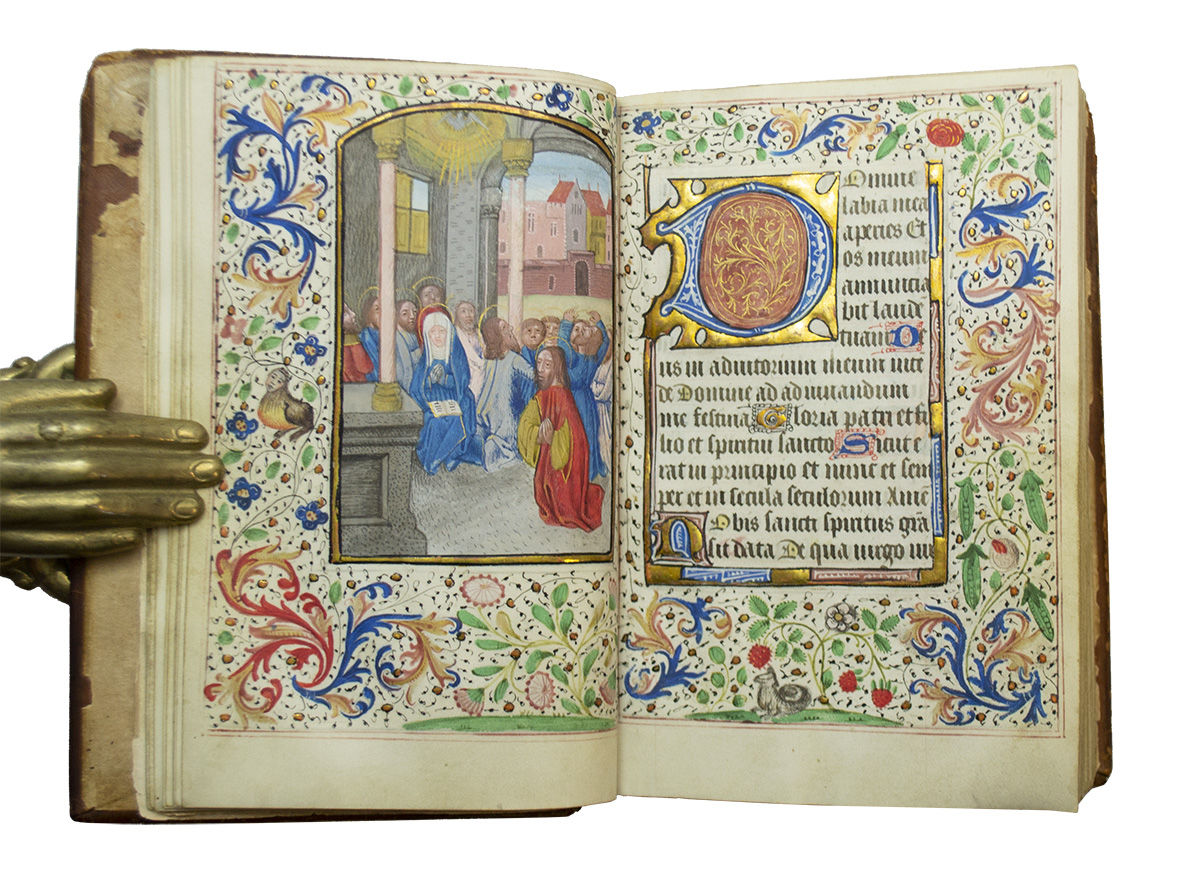 Domine
labia mea
aperies Et
os meum
annuncia
bit laude
tuam D
us in adiutorium meum inte
de Domine ad adiuuandum
me festina Gloria patri et fi
lio et spiritui sancto Sicut e
rat in principio et nunc et sem
per et in secula seculorum Ame
Nobis sancti spiritus gra
sit data De qua virgo in